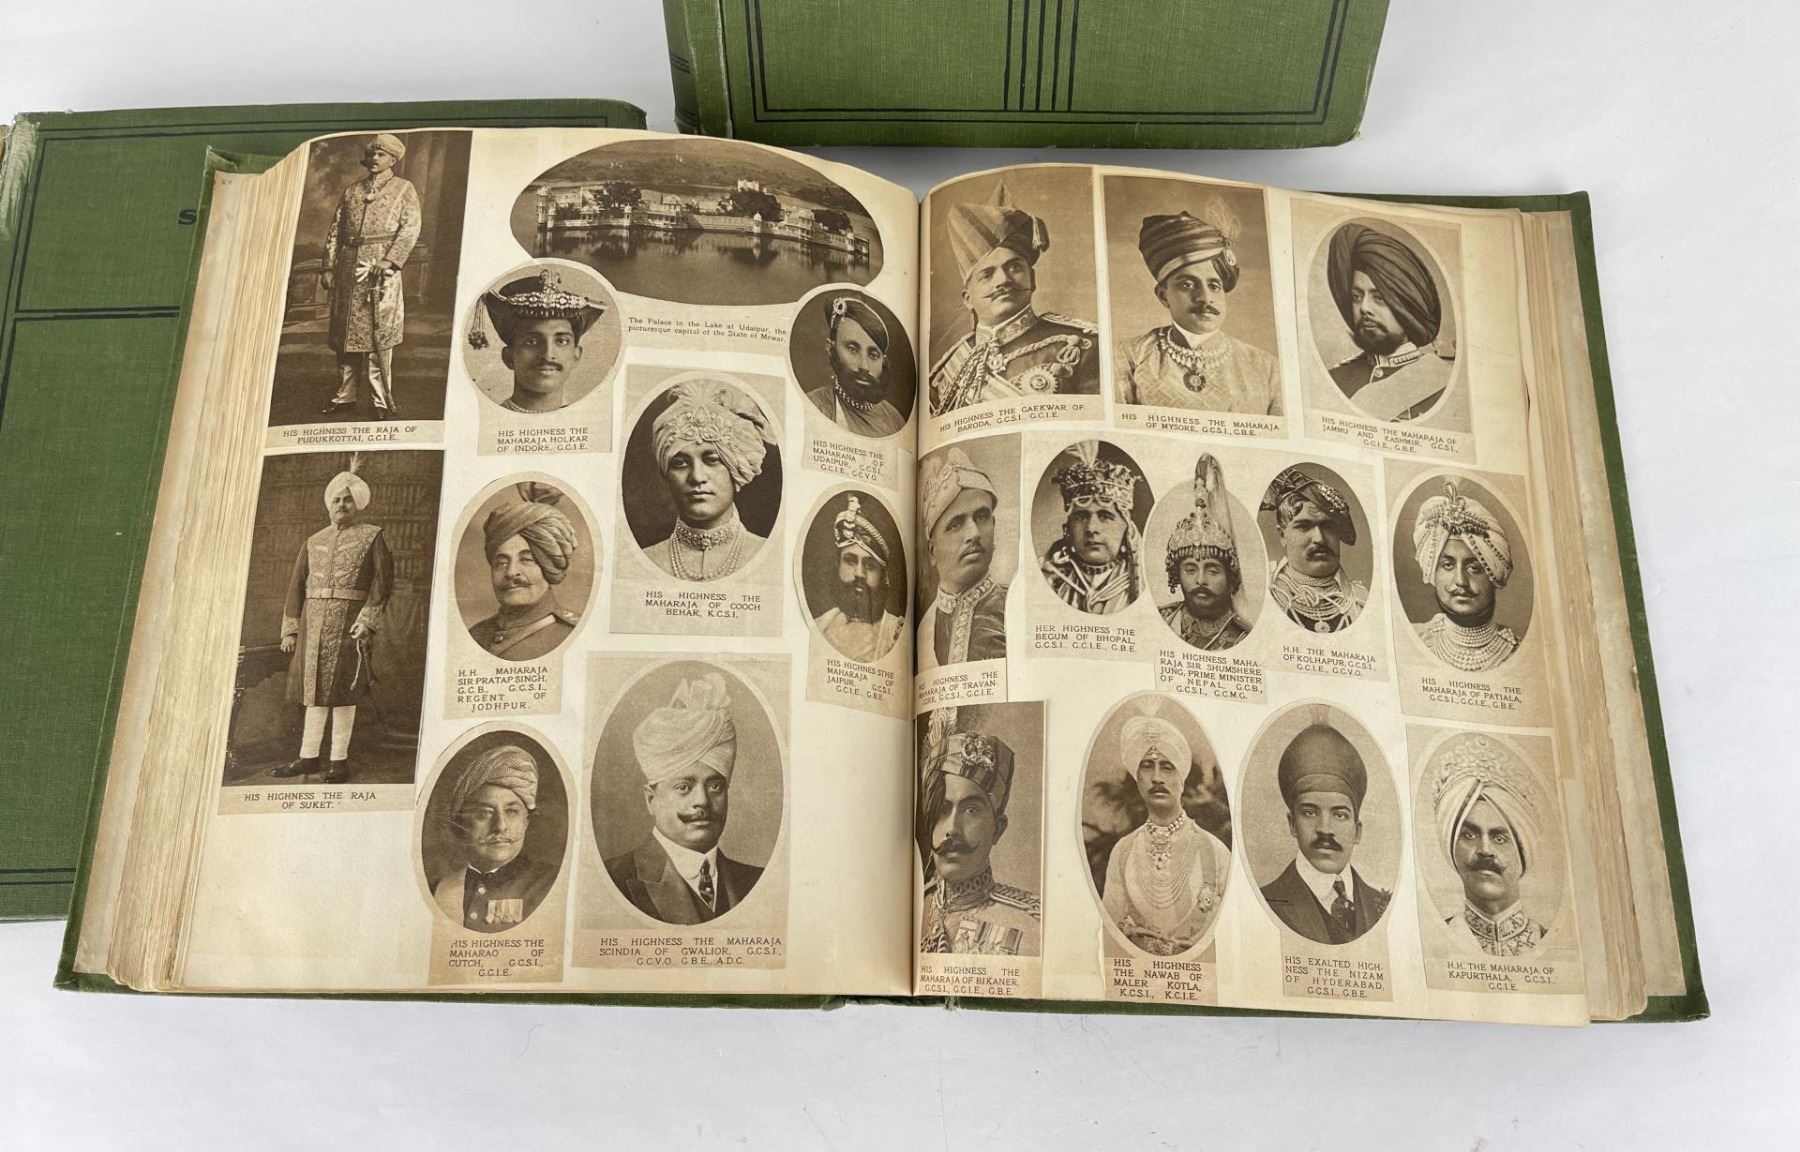 S
HIS HIGHNESS THE RAJA OF
PUDUKKOTTAI, G.C.I.E.
HIS HIGHNESS THE RAJA
OF SUKET.
The Palace in the Lake at Udaipur, the
picturesque capital of the State of Mewar.
HIS HIGHNESS THE
MAHARAJA HOLKAR
OF INDORE, G.C.I.E.
HIS HIGHNESS THE
MAHARANA OF
UDAIPUR, G.C.S.I.,
G.C.I.E., G.C.V.O.
HIS HIGHNESS THE
MAHARAJA OF COOCH
BEHAR, K.C.S.I.
H.H. MAHARAJA
SIR PRATAP SINGH,
G.C.B., G.C.S.I.,
REGENT OF
JODHPUR.
HIS HIGHNES STHE
MAHARAJA OF
JAIPUR, G.C.S.I.,
G.C.I.E., G.B.E.
HIS HIGHNESS THE
MAHARAO OF
CUTCH, G.C.S.I.,
G.C.I.E.
HIS HIGHNESS THE MAHARAJA
SCINDIA OF GWALIOR, G.C.S.I.,
G.C.V.O., G.B.E., A.D.C.
HIS HIGHNESS THE GAEKWAR OF
BARODA, G.C.S.I., G.C.I.E.
HIS HIGHNESS THE MAHARAJA
OF MYSORE, G.C.S.I., G.B.E.
HIS HIGHNESS THE MAHARAJA OF
JAMMU AND KASHMIR, G.C.S.I.,
G.C.I.E., G.B.E.
HIS HIGHNESS THE
MAHARAJA OF TRAVAN-
CORE, G.C.S.I., G.C.I.E.
HER HIGHNESS THE
BEGUM OF BHOPAL,
G.C.S.I., G.C.I.E., G.B.E.
HIS HIGHNESS MAHA-
RAJA SIR SHUMSHERE
JUNG, PRIME MINISTER
OF NEPAL, G.C.B.,
G.C.S.I., G.C.M.G.
H.H. THE MAHARAJA
OF KOLHAPUR, G.C.S.I.,
G.C.I.E., G.C.V.O.
HIS HIGHNESS THE
MAHARAJA OF PATIALA,
G.C.S.I., G.C.I.E., G.B.E.
HIS HIGHNESS THE
MAHARAJA OF BIKANER,
G.C.S.I., G.C.I.E., G.B.E.
HIS HIGHNESS
THE NAWAB OF
MALER KOTLA,
K.C.S.I., K.C.I.E.
HIS EXALTED HIGH-
NESS THE NIZAM
OF HYDERABAD,
G.C.S.I., G.B.E.
H.H. THE MAHARAJA OF
KAPURTHALA, G.C.S.I.,
G.C.I.E.